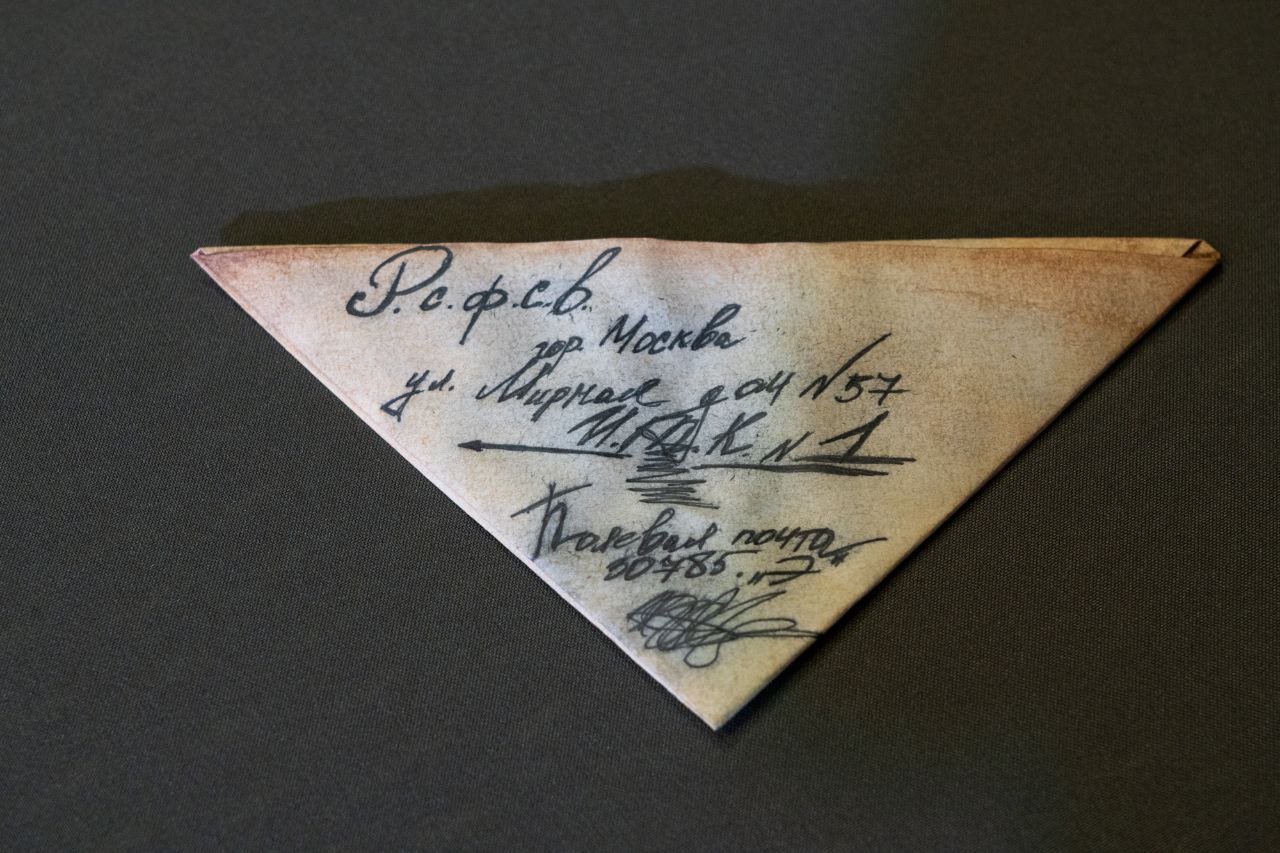 Р.с.ф.с.в.
гор. Москва
ул. Мирная дом №57
К. №1
Полевая почта
30785. „Э"